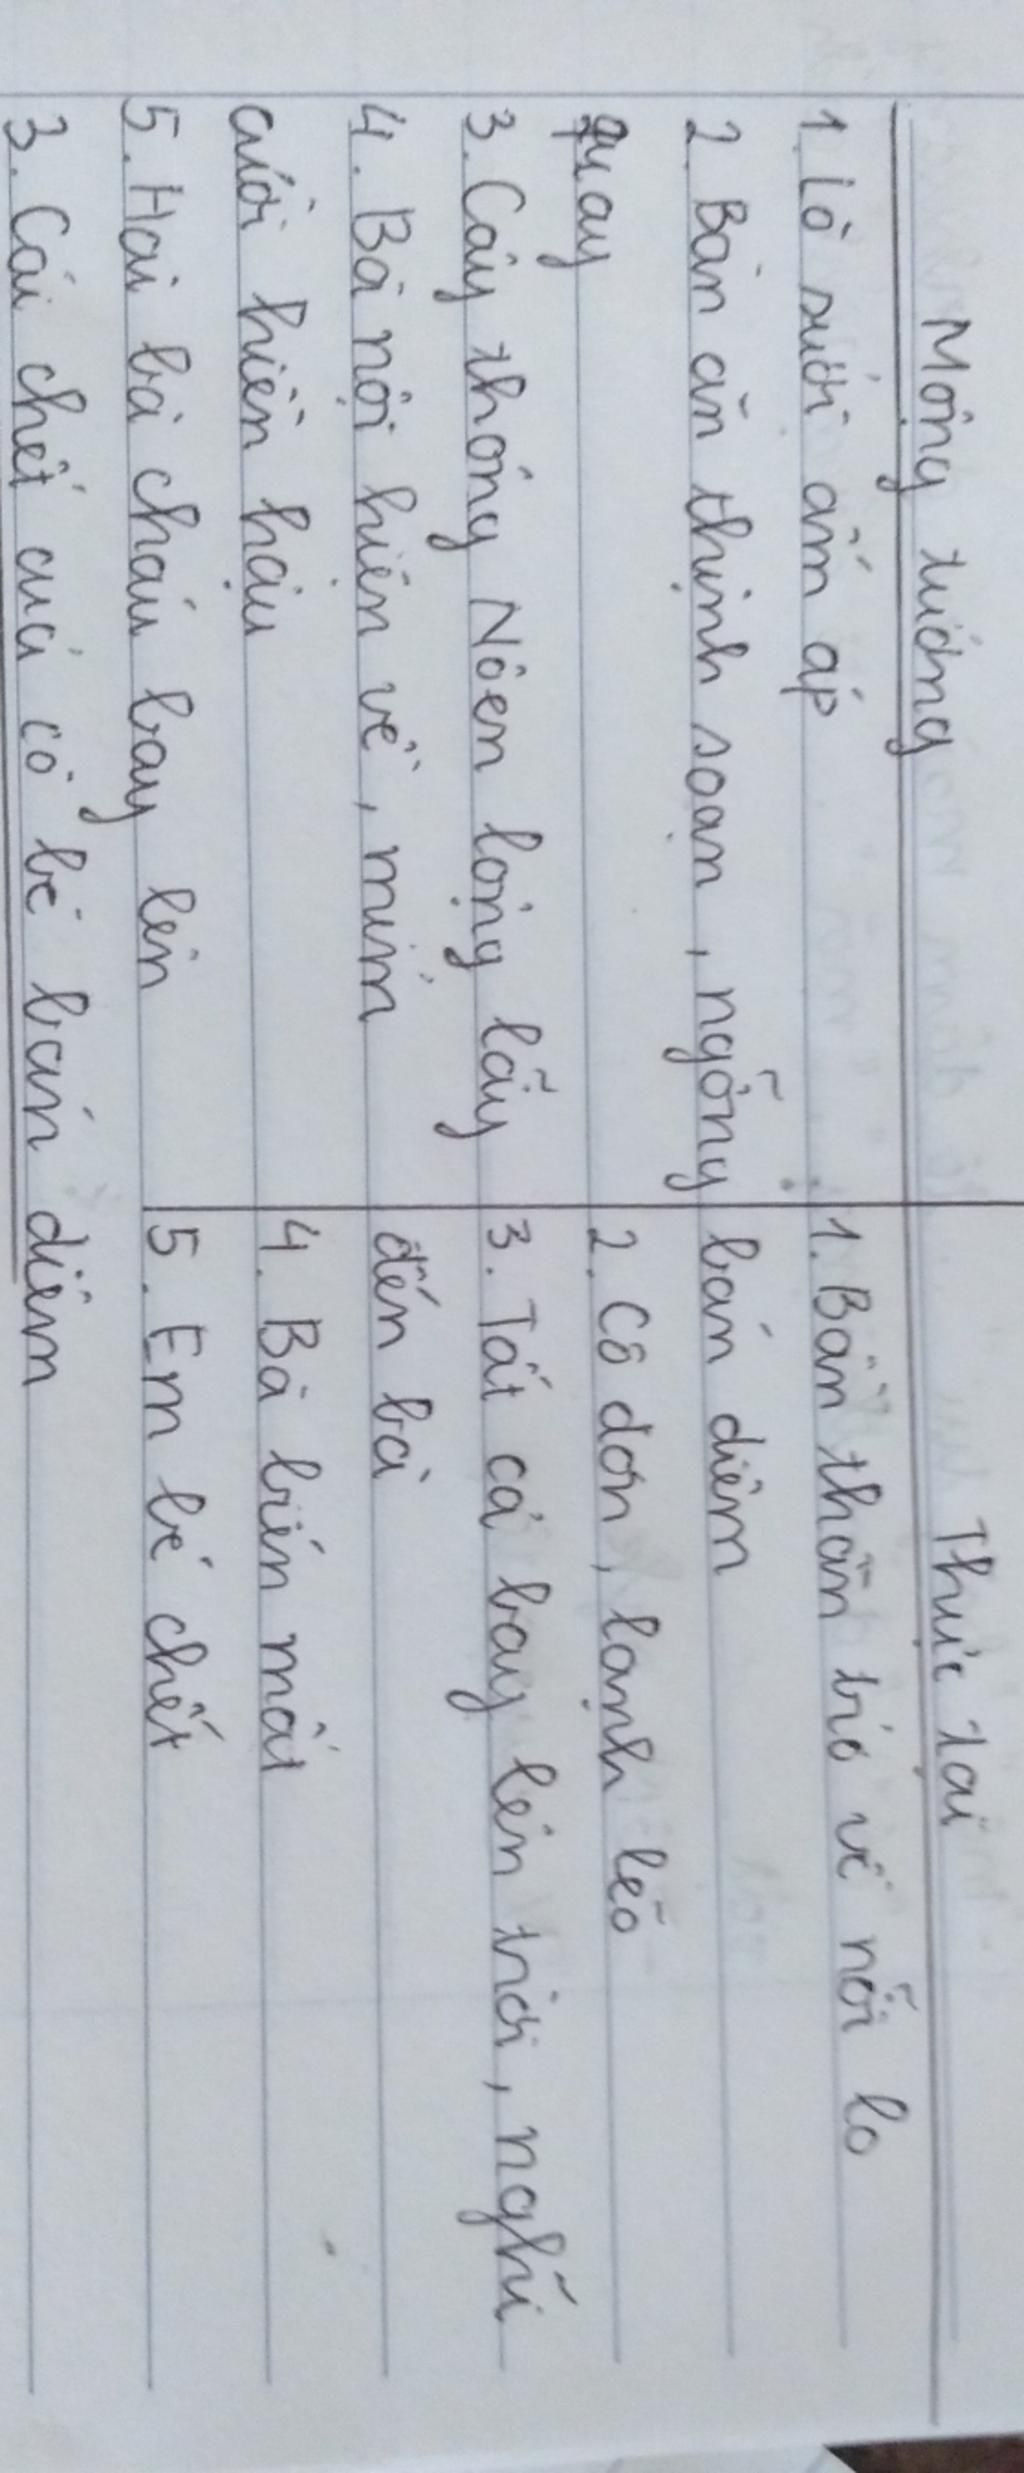 Mộng tưởng
Thực tại
1. Lò sưởi ấm áp
1. Bần thần trở về nỗi lo
2 Bàn ăn thịnh soạn, ngỗng
bán diêm
quay
2. Cô đơn, lạnh lẽo
3. Cây thông Nôen lộng lẫy
3. Tất cả bay lên trời, nghĩ
4. Bà nội hiện về, mỉm
đến bà
cười hiền hậu
4. Bà biến mất
5. Hai bà cháu bay lên
5. Em bé chết
3. Cái chết của cô bé bán diêm